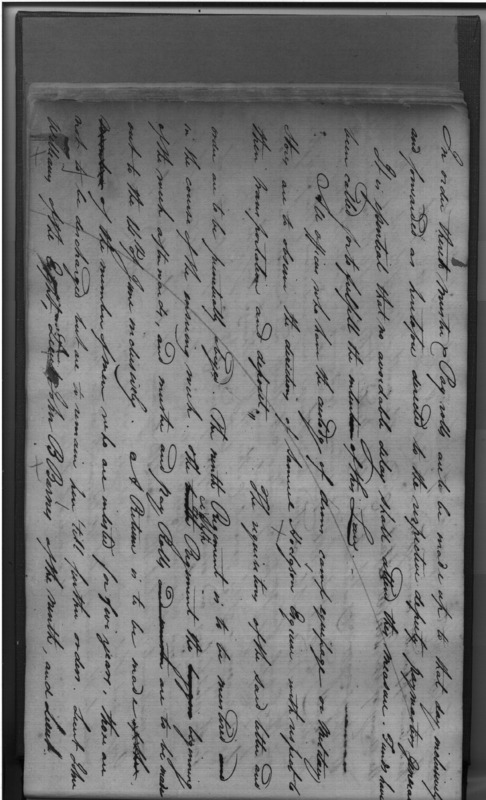 In order that the muster & Pay rolls are to be made up to that day inclusively
and forwarded as heretofore directed to the respective deputy Paymaster General
It is expected that no avoidable delay shall attend this measure. Funds have
been called for to fulfill the intention of the Law.
All officers who have the custody of arms camp equipage or Military
Stores are to observe the directions of Samuel Hodgdon Esquire with respect to
their transportation and deposit.
The requisitions of the said letter and
order are to be punctually obeyed. The ninth Regiment is to be mustered
in the course of the ensuing week. the Regiment the beginning
of the week afterwards, and muster and Pay Rolls are to be made
out to the 14th of June inclusively. A Return is to be made
of the number of men who are enlisted for five years, these are
not to be discharged but are to remain here till further orders. Lieut John
William of the Eighth, John B Barnes of the ninth, and Lieut.